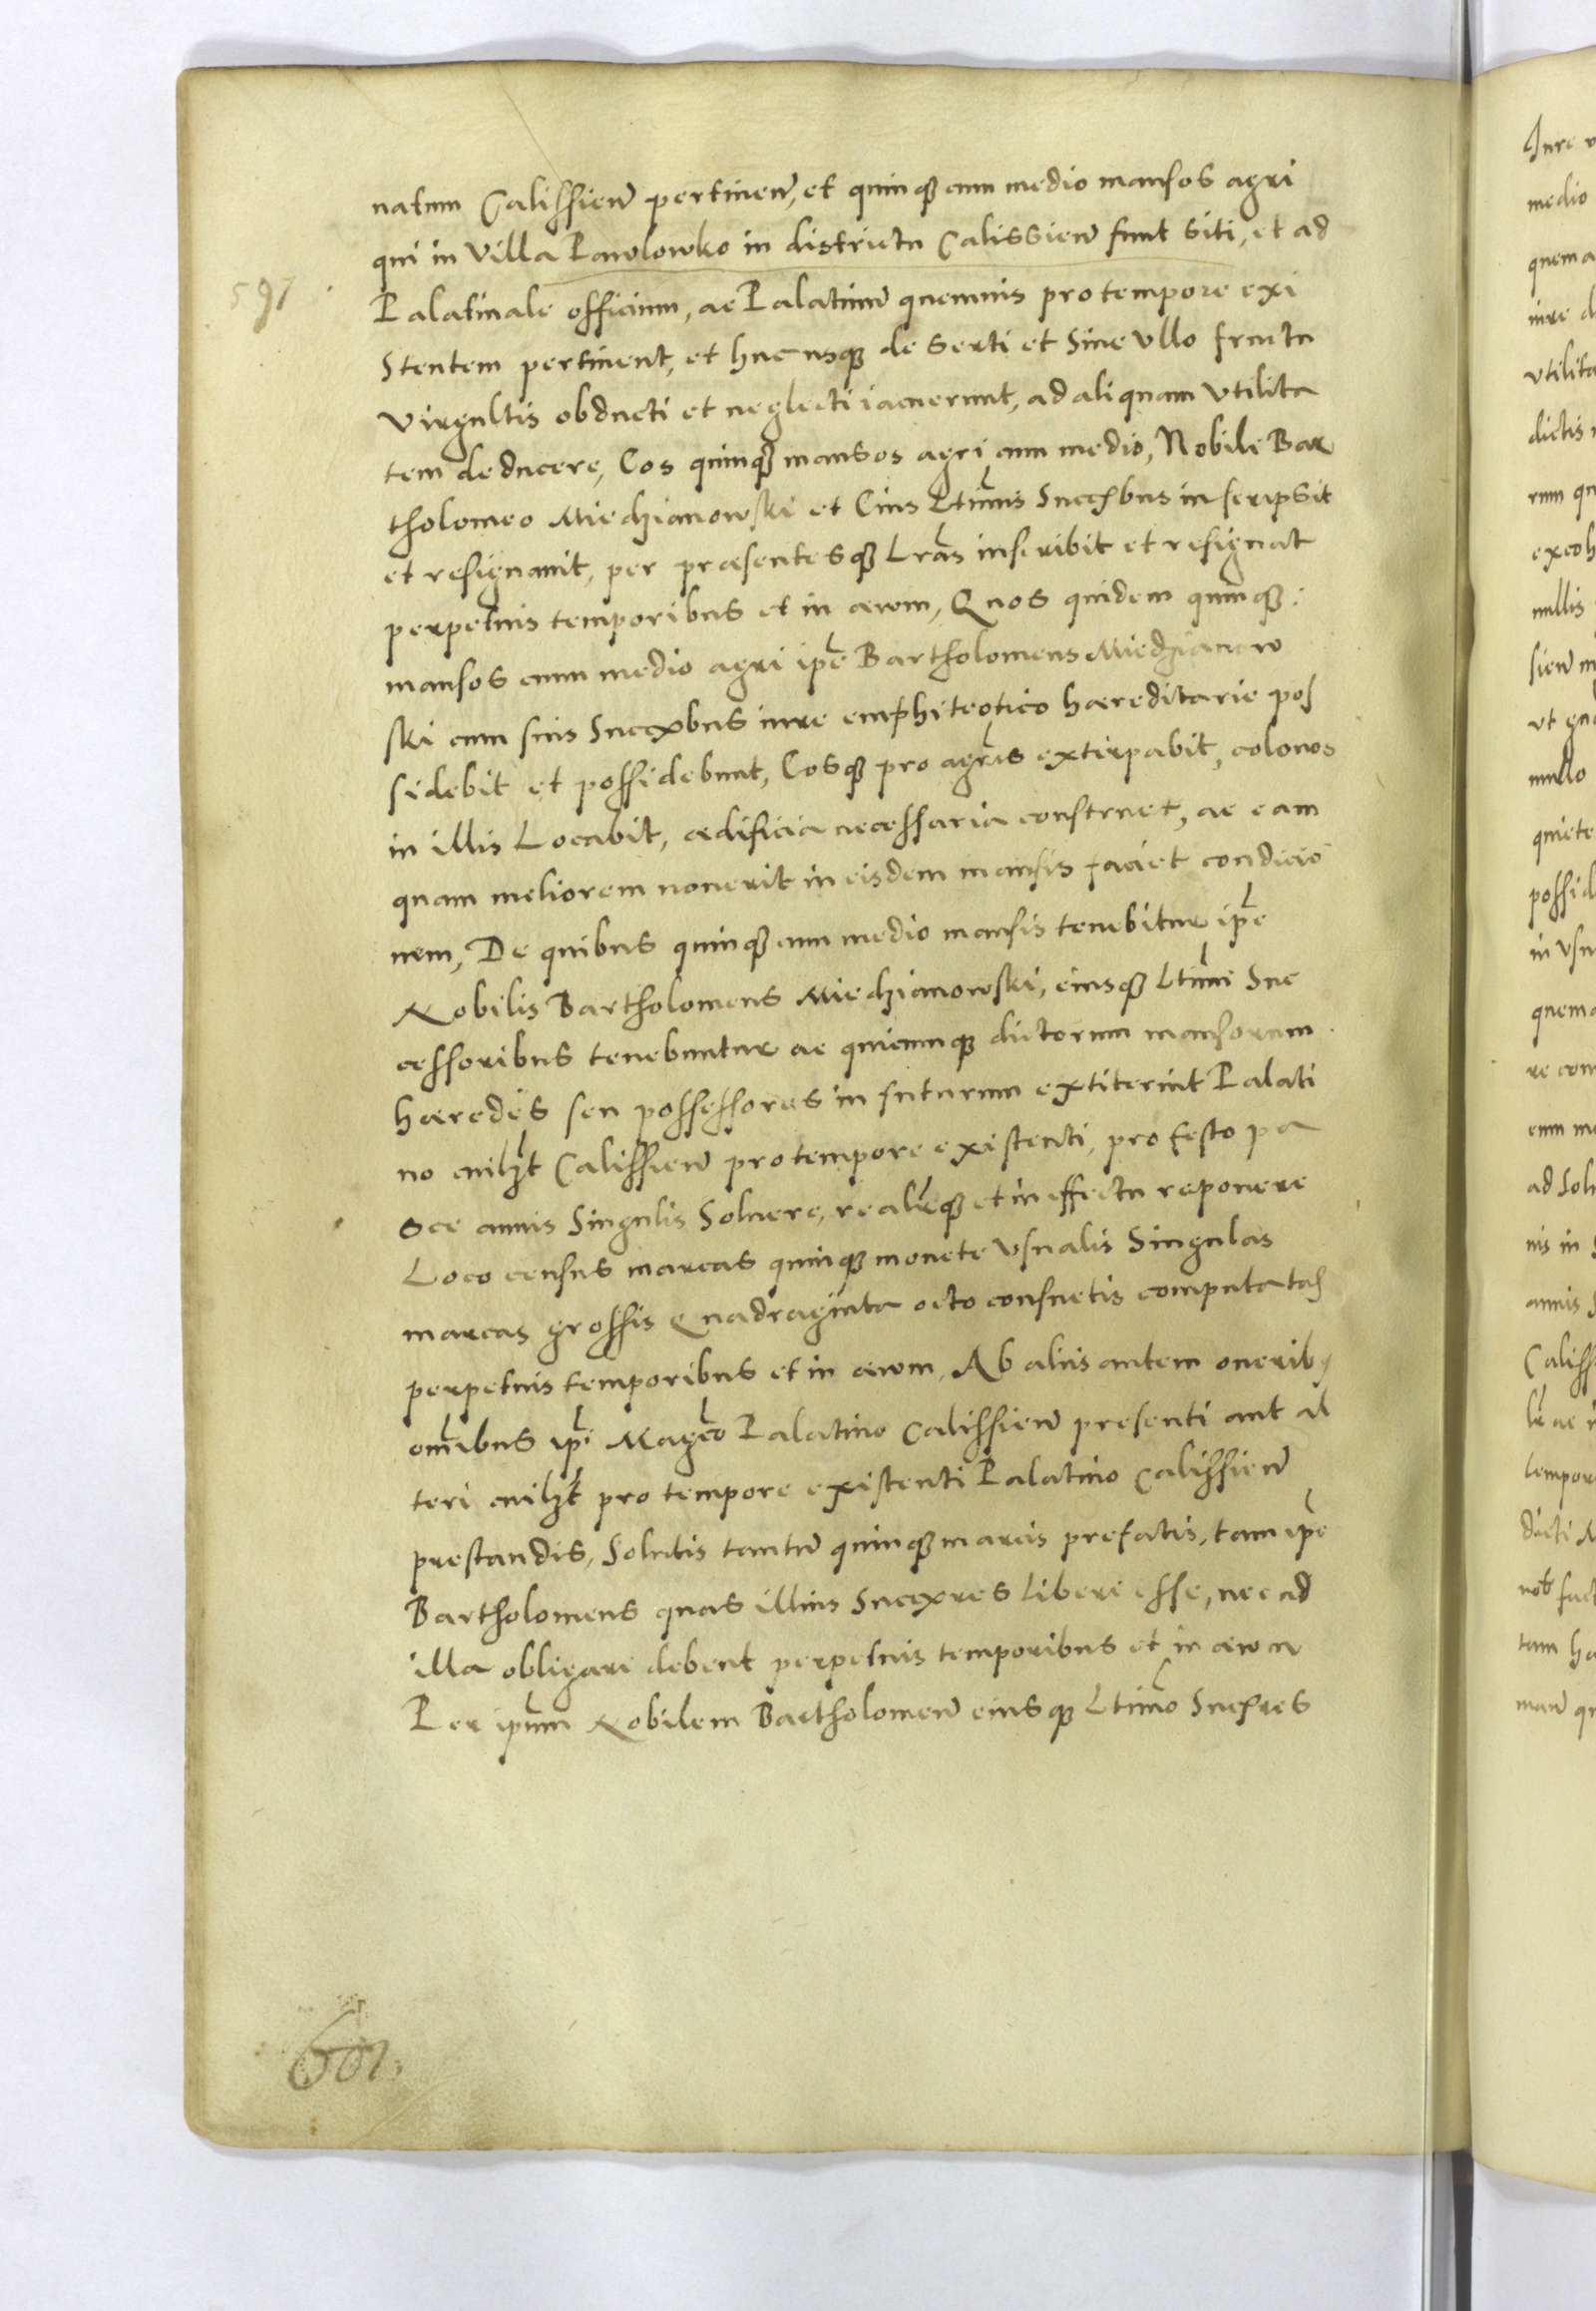 natum Calissien pertinen, et quinq cum medio mansos agri
qui in villa Pawlowko in districtu Calissien sunt siti, et ad
591
Palatinale officium, ac Palatinum quemuis pro tempore exi
stentem pertinent, et hucusq deserti et sine vllo fructu
virgultis obducti et neglecti iacuerunt, ad aliquam vtilita
tem deducere, Eos quinq mansos agri cum medio, Nobili Bar
tholomeo Miedzianowski et Eius Ltimis Succbus inscripsit
et resignauit, per præsentesq Lras inscribit et resignat
perpetuis temporibus et in æwm, Quos quidem quinq
mansos cum medio agri ipe Bartholomeus Miedzianow
ski cum suis Succbus iure emphiteotico hæreditarie pos
sidebit et possidebunt, Eosq pro agris extirpabit, colonos
in illis Locabit, ædificia necessaria construet, ac eam
quam meliorem nouerit in eisdem mansis faciet condicio
nem, De quibus quinq cum medio mansis tenebitur ipe
Nobilis Bartholomeus Miedzianowski, eiusq Ltimi Suc
cessoribus tenebuntur ac quicunq dictorum mansorum
hæredes seu possessores in futurum extiterint Palati
no cuilzt Calissien pro tempore existenti, pro festo pa
scæ annis Singulis Soluere, realrq et in effectu reponere
Loco census marcas quinq monete vsualis Singulas
marcas grossis Quadraginta octo consuetis computatas
perpetuis temporibus et in æwm, Ab aliis autem onerib
omibus ip Magco Palatino Calissien presenti aut al
teri cuilzt pro tempore existenti Palatino Calissien
prestandis, Solutis tantum quinq marcis prefatis, tam ipe
Bartholomeus quas illius Succres Liberi esse, nec ad
illa obligari debent perpetuis temporibus et in æwm
Per ipum Nobilem Bartholomeum eiusq Ltimo Succres
601